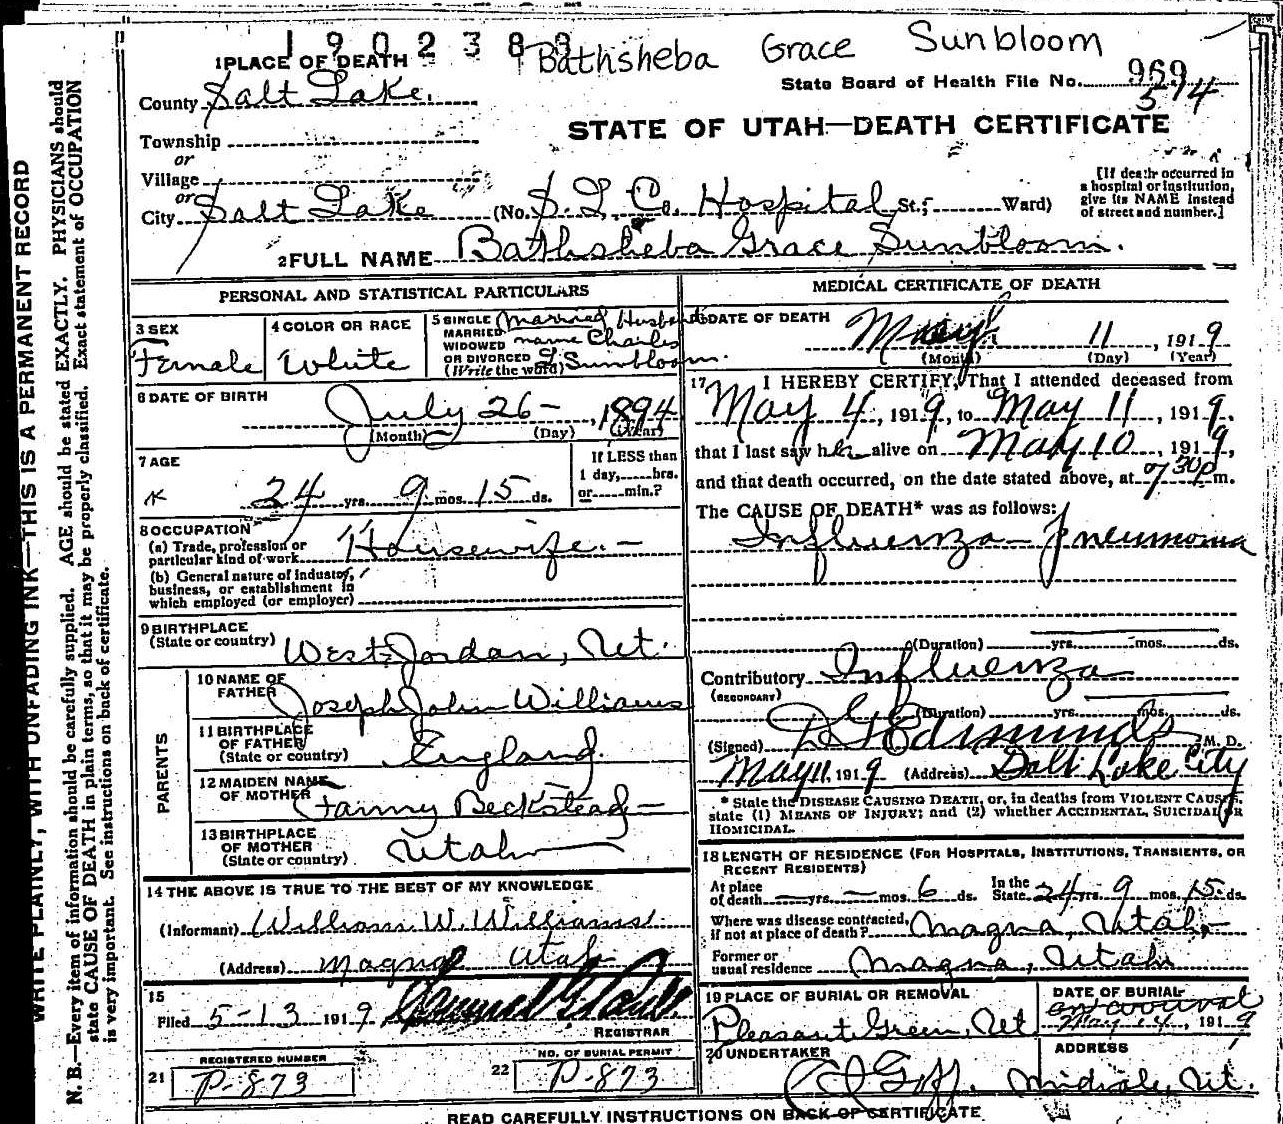 1902383
Bathsheba Grace Sunbloom
1 PLACE OF DEATH
State Board of Health File No. 969
574
County Salt Lake.
STATE OF UTAH—DEATH CERTIFICATE
Township
or
Village
or
City Salt Lake (No. S. L. Co. Hospital St.; Ward)
[If death occurred in a hospital or institution, give its NAME instead of street and number.]
2 FULL NAME Bathsheba Grace Sunbloom.
PERSONAL AND STATISTICAL PARTICULARS
3 SEX
Female
4 COLOR OR RACE
White
5 SINGLE
MARRIED
WIDOWED
OR DIVORCED
(Write the word)
Married Husband
name Charles
Sunbloom.
6 DATE OF BIRTH
July 26 - , 1894
(Month) (Day) (Year)
7 AGE
24 yrs. 9 mos. 15 ds.
If LESS than
1 day,.....hrs.
or.....min.?
8 OCCUPATION
(a) Trade, profession or
particular kind of work Housewife. -
(b) General nature of industry,
business, or establishment in
which employed (or employer)
9 BIRTHPLACE
(State or country) West Jordan, Ut.
PARENTS
10 NAME OF
FATHER Joseph John Williams
11 BIRTHPLACE
OF FATHER
(State or country) England.
12 MAIDEN NAME
OF MOTHER Fanny Beckstead
13 BIRTHPLACE
OF MOTHER
(State or country) Utah
14 THE ABOVE IS TRUE TO THE BEST OF MY KNOWLEDGE
(Informant) William W. Williams
(Address) Magna Utah
15
Filed 5-13 1919
REGISTRAR
REGISTERED NUMBER
21 P-873
NO. OF BURIAL PERMIT
22 P-873
MEDICAL CERTIFICATE OF DEATH
16 DATE OF DEATH
May 11, 1919
(Month) (Day) (Year)
17 I HEREBY CERTIFY, That I attended deceased from
May 4, 1919, to May 11, 1919,
that I last saw her alive on May 10, 1919,
and that death occurred, on the date stated above, at 7 30 p m.
The CAUSE OF DEATH* was as follows:
Influenza - Pneumonia
(Duration) yrs. mos. ds.
Contributory Influenza
(SECONDARY)
(Duration) yrs. mos. ds.
(Signed) Edmunds M. D.
May 11, 1919 (Address) Salt Lake City
* State the DISEASE CAUSING DEATH, or, in deaths from VIOLENT CAUSES,
state (1) MEANS OF INJURY; and (2) whether ACCIDENTAL, SUICIDAL OR
HOMICIDAL.
18 LENGTH OF RESIDENCE (FOR HOSPITALS, INSTITUTIONS, TRANSIENTS, OR
RECENT RESIDENTS)
At place
of death yrs. mos. 6 ds. In the State 24 yrs. 9 mos. 15 ds.
Where was disease contracted,
if not at place of death? Magna, Utah
Former or
usual residence Magna, Utah
19 PLACE OF BURIAL OR REMOVAL
Pleasant Green, Ut
DATE OF BURIAL
on arrival
May 14, 1919
20 UNDERTAKER
Goff.
ADDRESS
Midvale, Ut.
READ CAREFULLY INSTRUCTIONS ON BACK OF CERTIFICATE
WRITE PLAINLY, WITH UNFADING INK—THIS IS A PERMANENT RECORD
N. B.—Every item of information should be carefully supplied. AGE should be stated EXACTLY. PHYSICIANS should
state CAUSE OF DEATH in plain terms, so that it may be properly classified. Exact statement of OCCUPATION
is very important. See instructions on back of certificate.